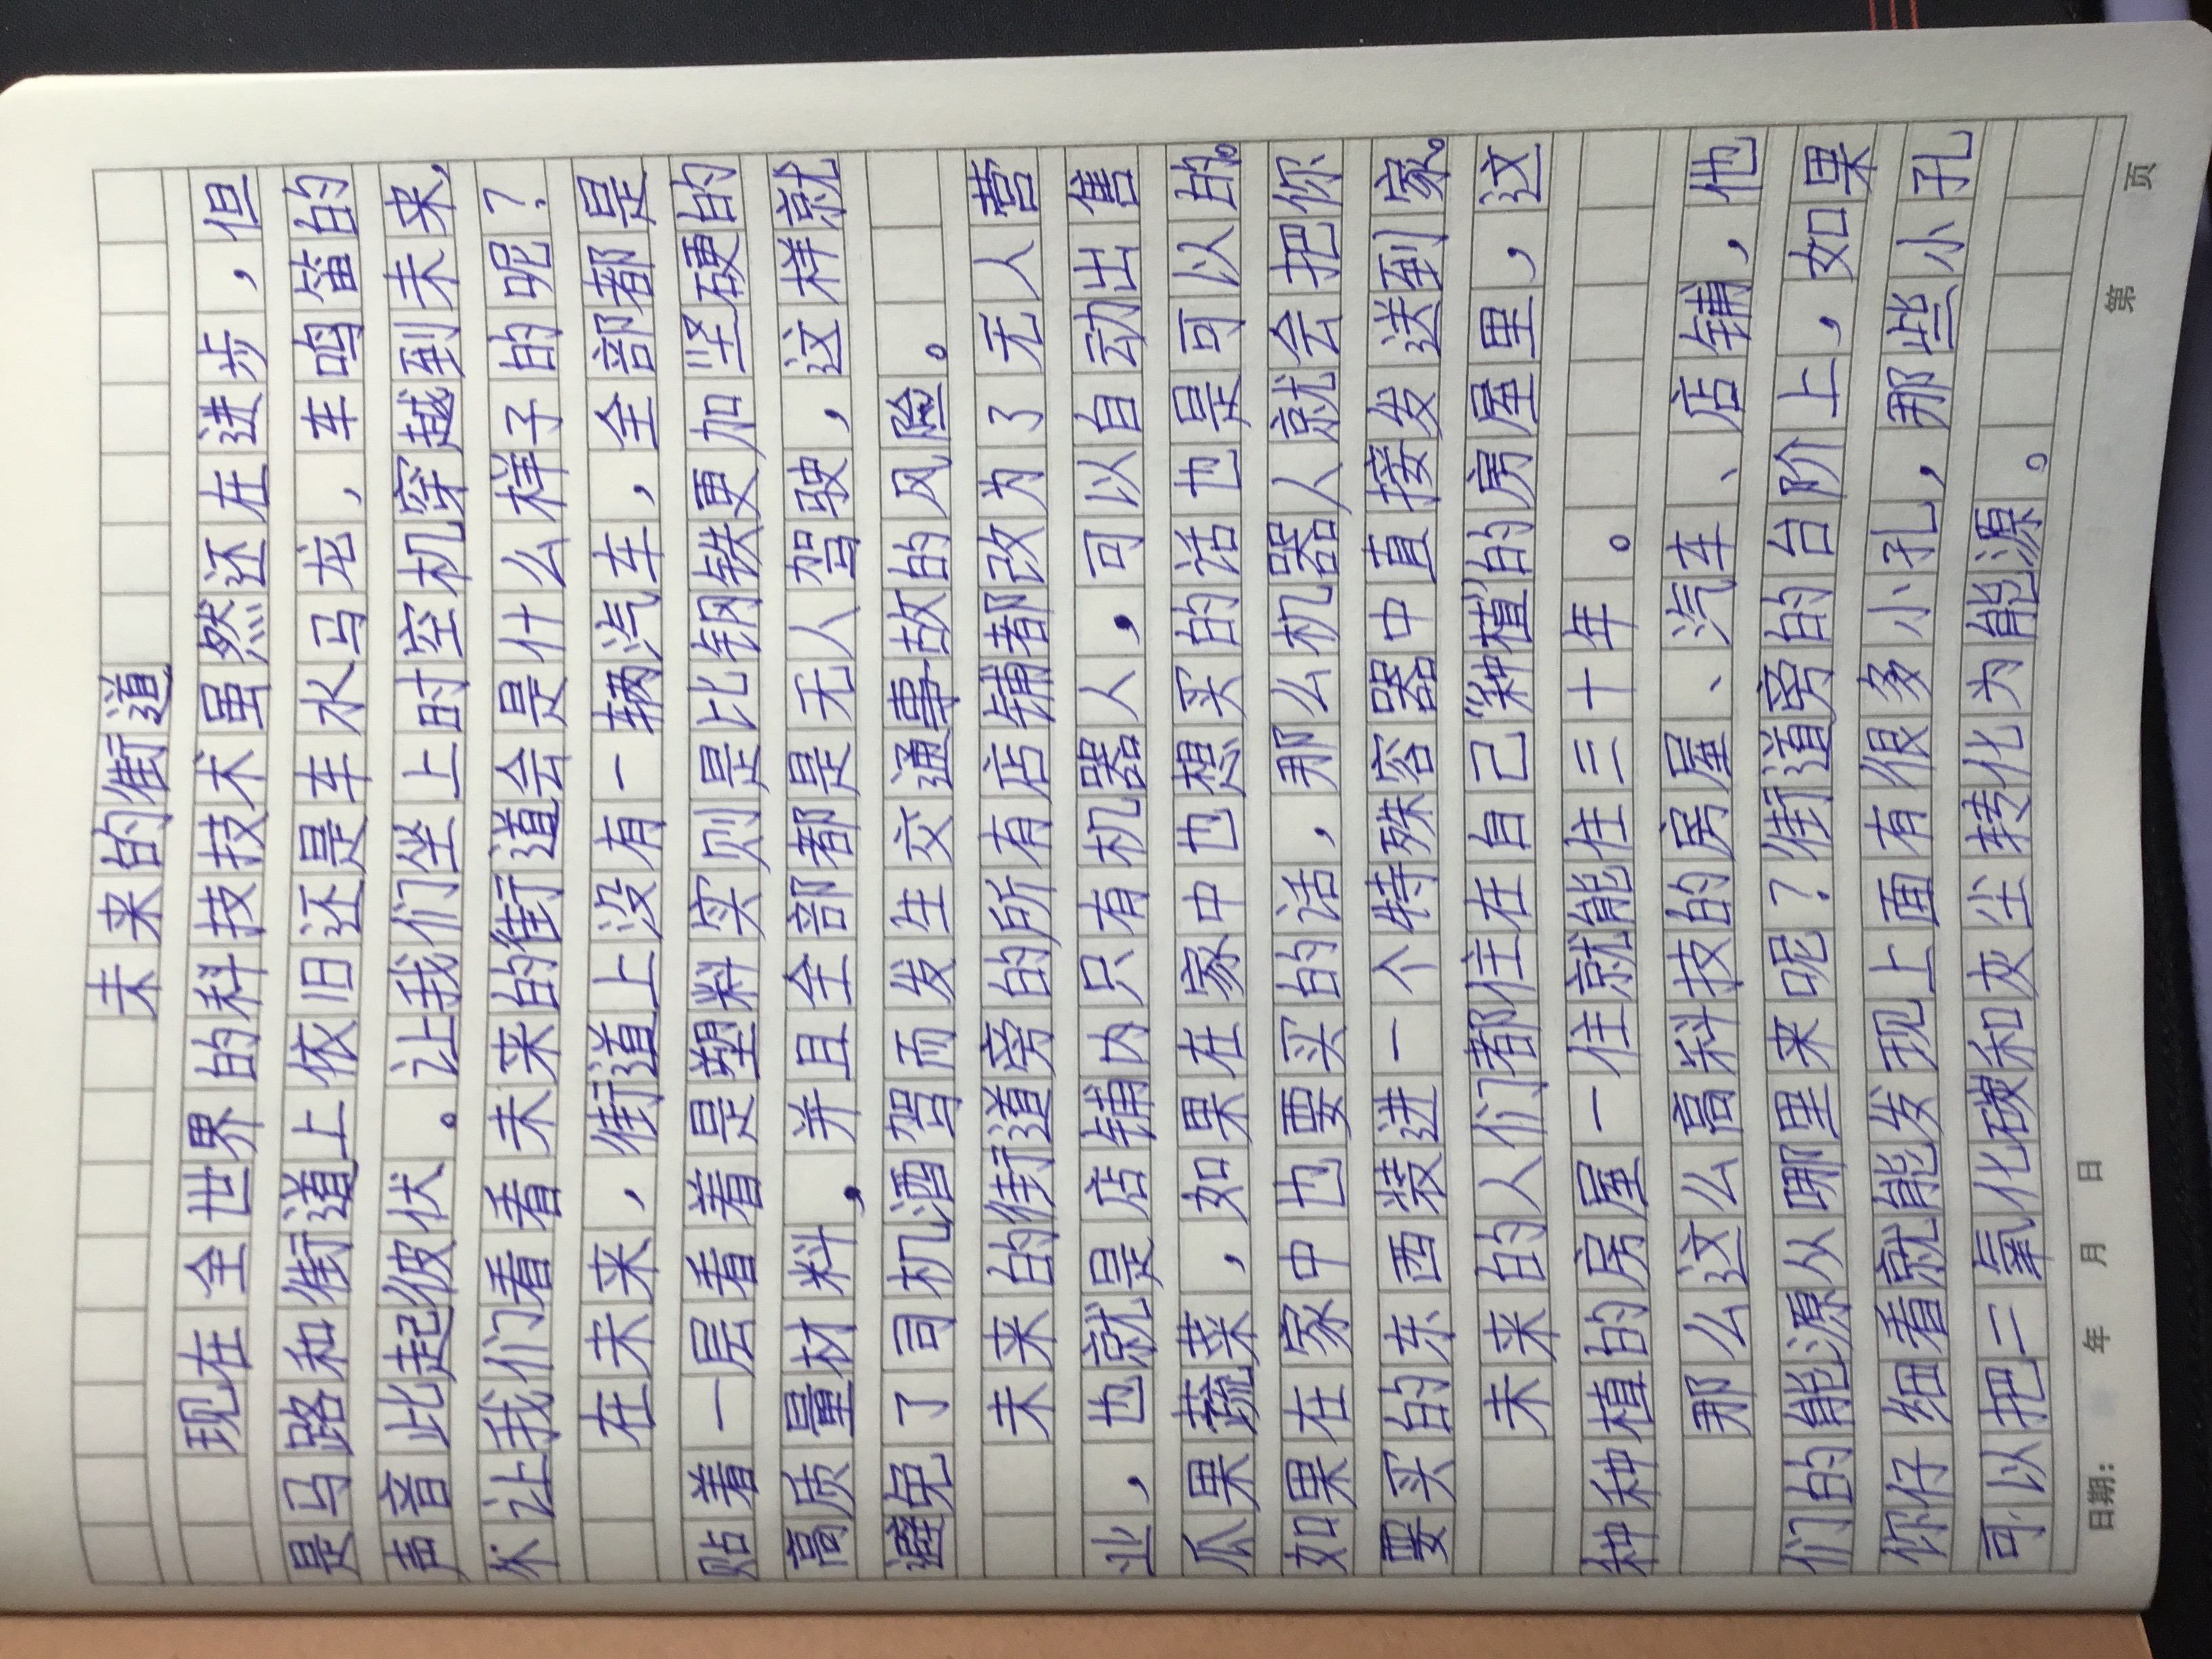 未来的街道
现在全世界的科技技术虽然还在进步，但
是马路和街道上依旧还是车水马龙，车鸣笛的
声音此起彼伏。让我们坐上时空机穿越到未来，
来让我们看看未来的街道会是什么样子的呢？
在未来，街道上没有一辆汽车，全部都是
贴着一层看着是塑料实则是比钢铁更加坚硬的
高质量材料，并且全部都是无人驾驶，这样就
避免了司机酒驾而发生交通事故的风险。
未来的街道旁的所有店铺都改为了无人营
业，也就是店铺内只有机器人，可以自动出售
瓜果蔬菜，如果在家中也想买的话也是可以的。
如果在家中也要买的话，那么机器人就会把你
要买的东西装进一个特殊容器中直接发送到家。
未来的人们都住在自己“种植”的房屋里，这
种种植的房屋一住就能住三十年。
那么这么高科技的房屋、汽车、店铺，他
们的能源从哪里来呢？街道旁的台阶上，如果
你仔细看就能发现上面有很多小孔，那些小孔
可以把二氧化碳和灰尘转化为能源。
日期： 年 月 日 第 页